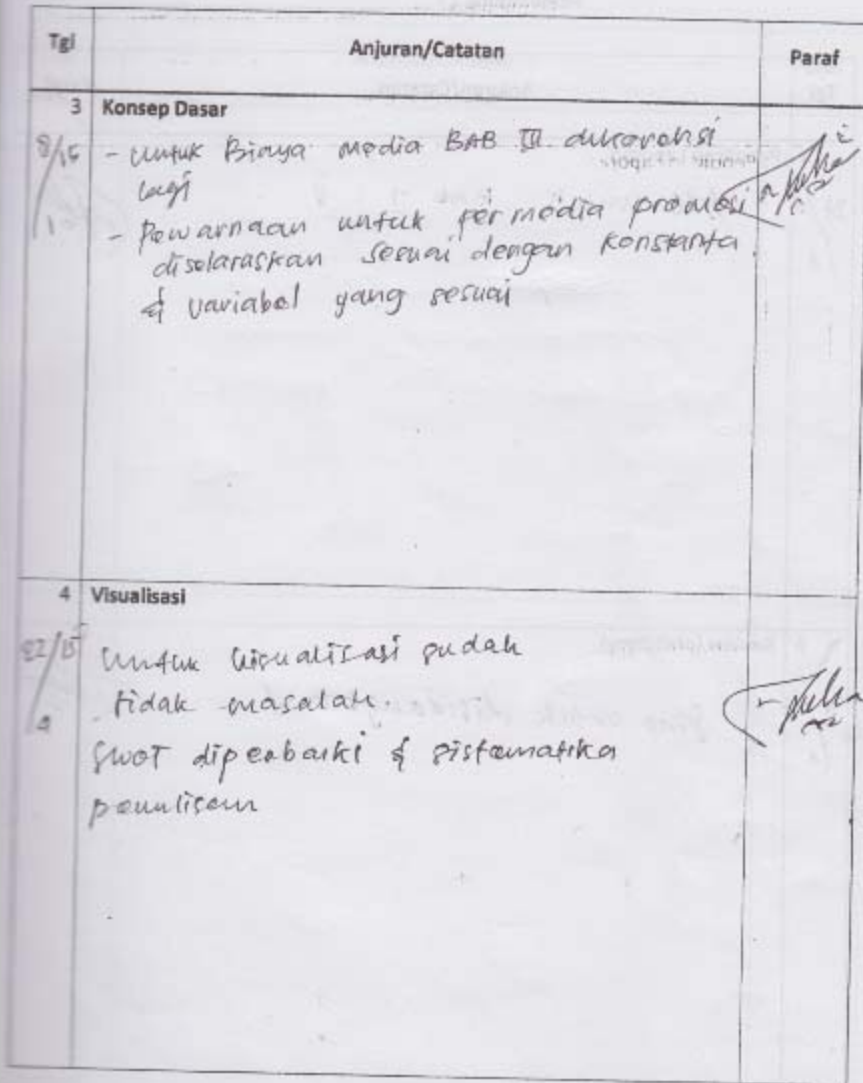 Tgl Anjuran/Catatan Paraf
3 Konsep Dasar
8/15 - untuk Biaya media BAB III dikoreksi
lagi
1 - Pewarnaan untuk per media promosi
diselaraskan sesuai dengan konstanta
& variabel yang sesuai
4 Visualisasi
22/15 Untuk visualisasi sudah
tidak masalah.
SWOT diperbaiki & sistematika
penulisan